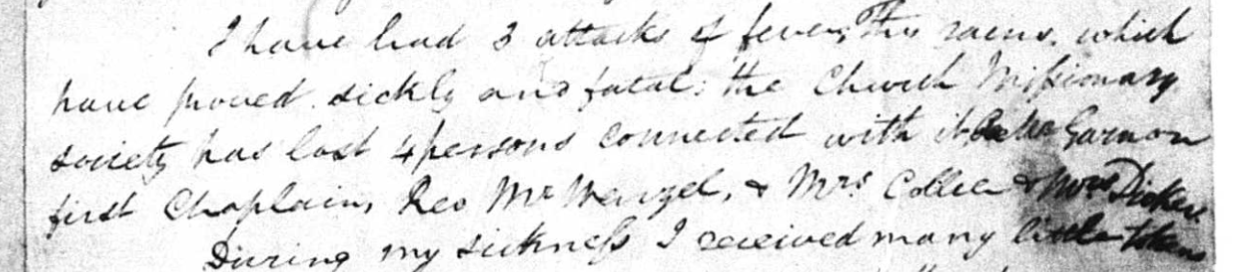 I have had 3 attacks of fever, this rains, which
have proved sickly and fatal: the Church Missionary
society has lost 4 persons connected with it Garnon
first Chaplain, Rev Mr Wenzel, & Mrs Collier & Mrs
During my sickness I received many little